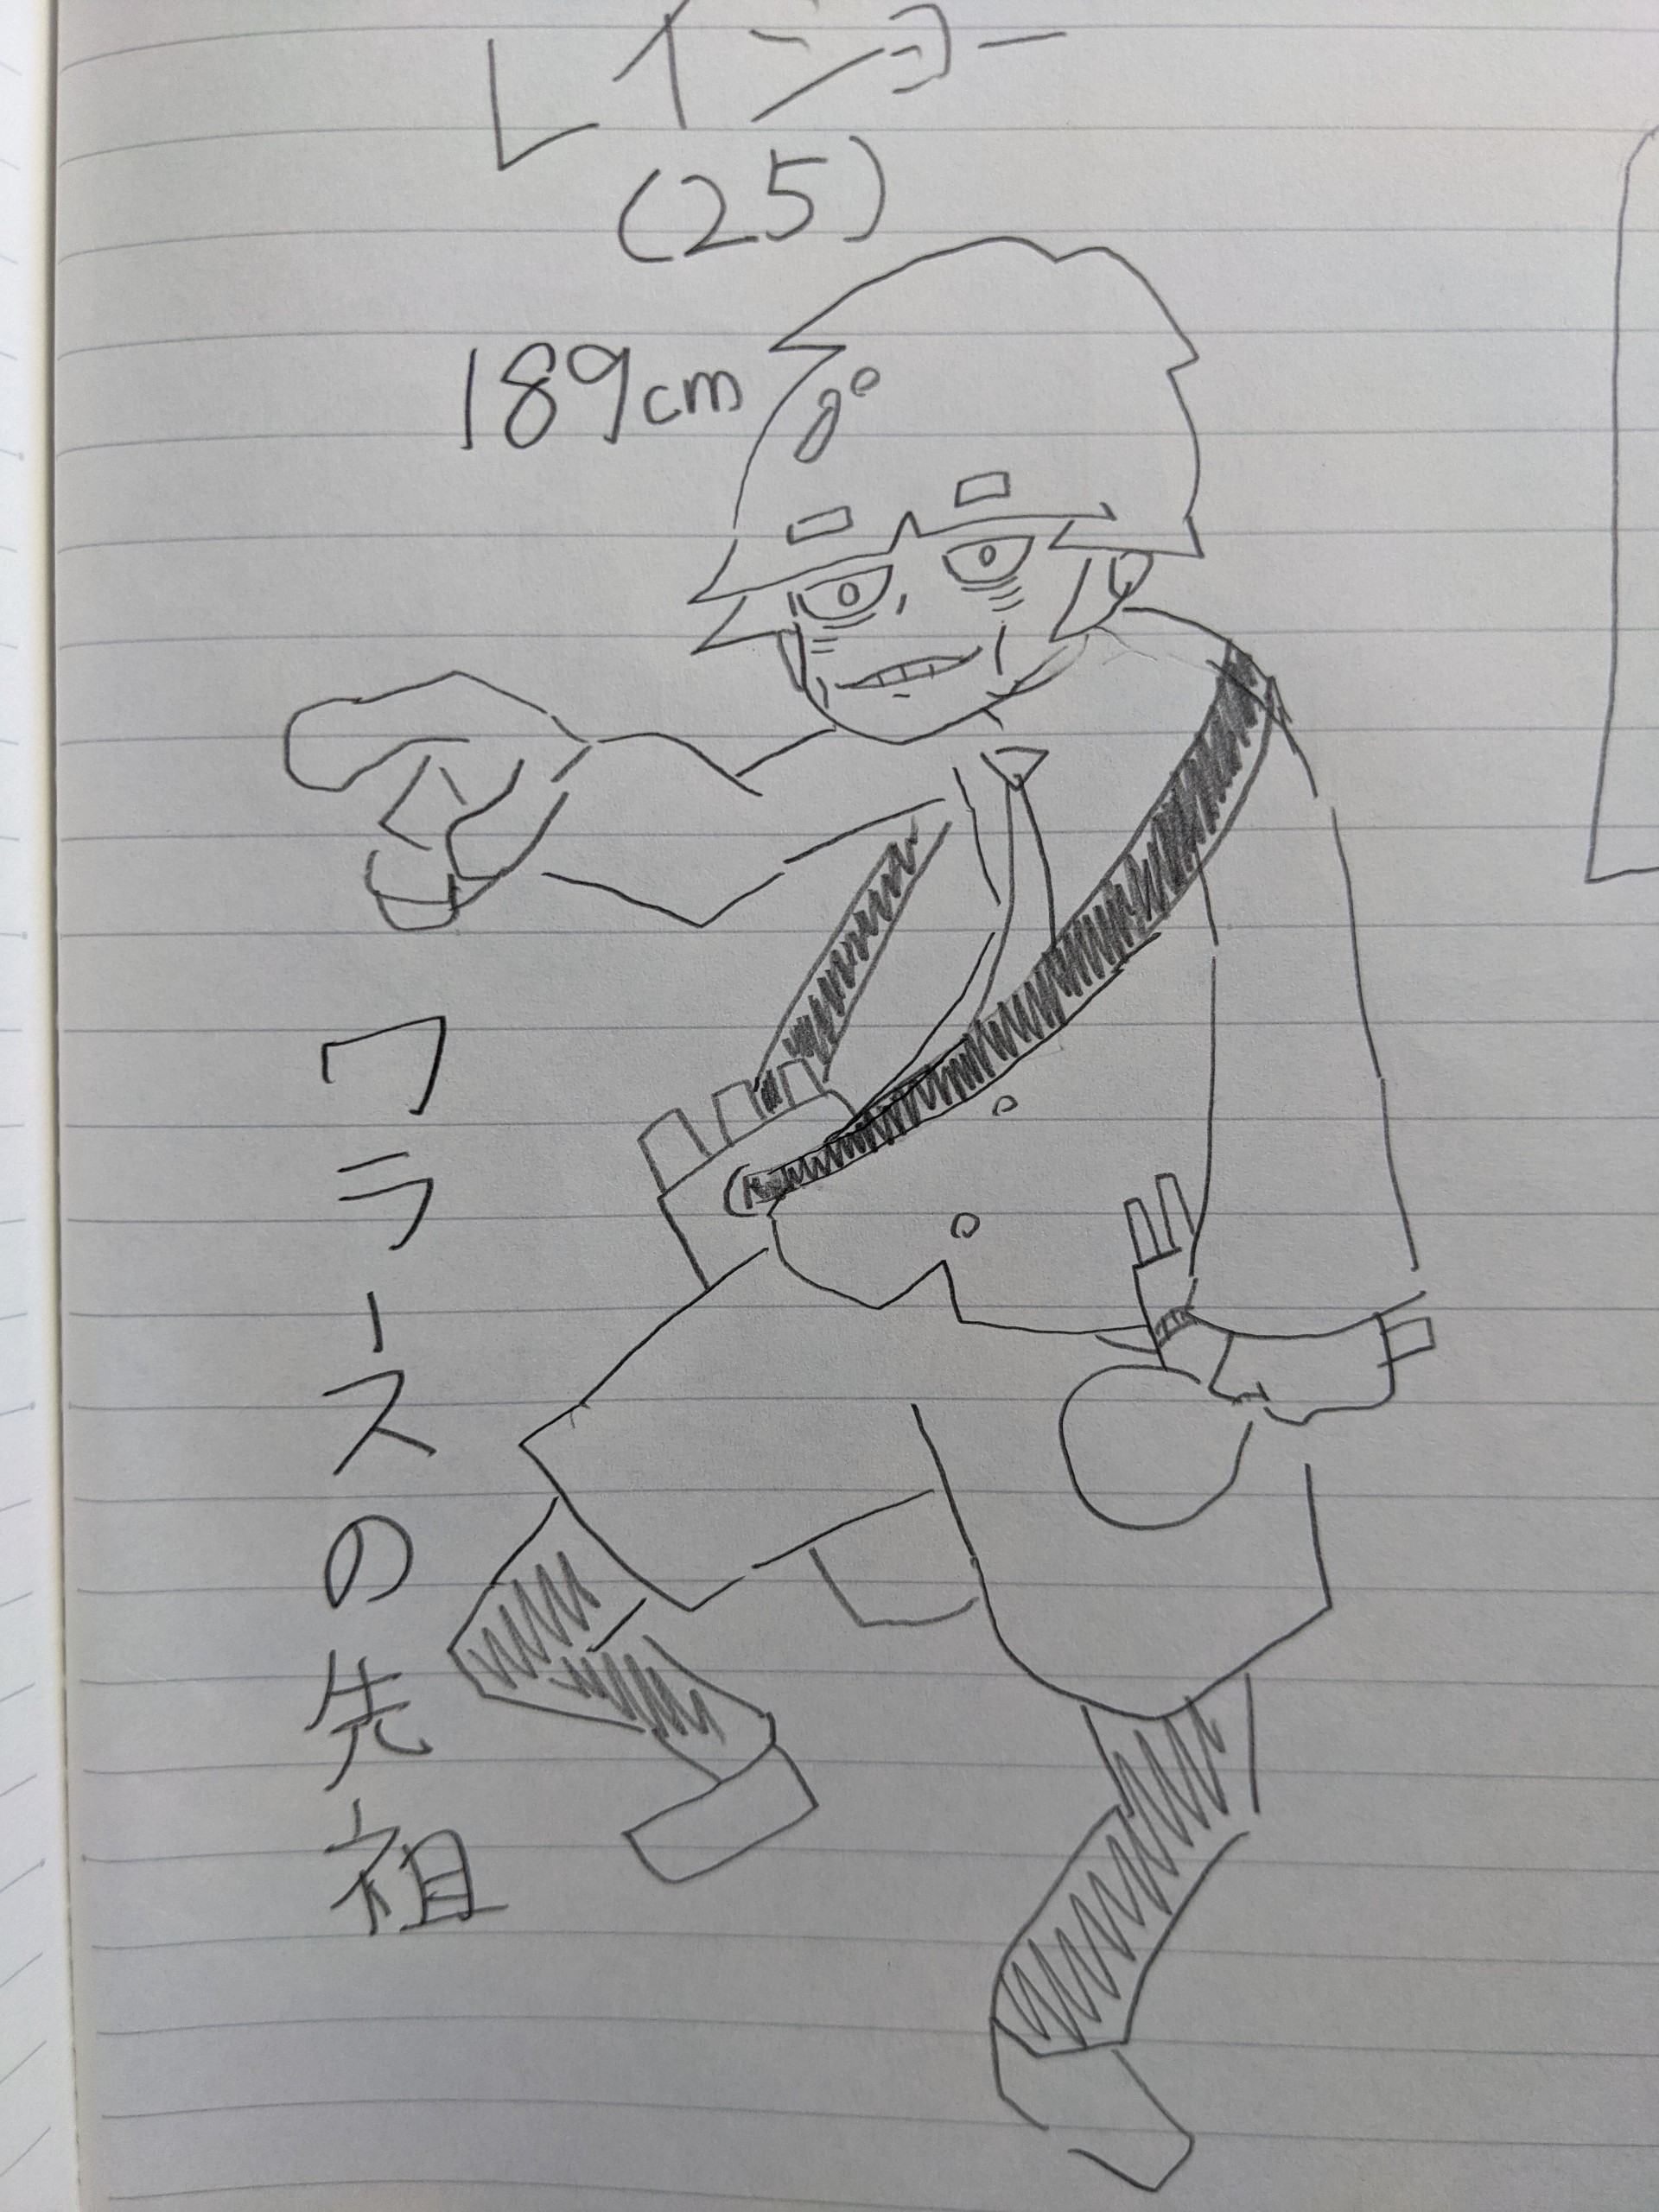 レイジョー
(25)
189cm
ワラースの先祖